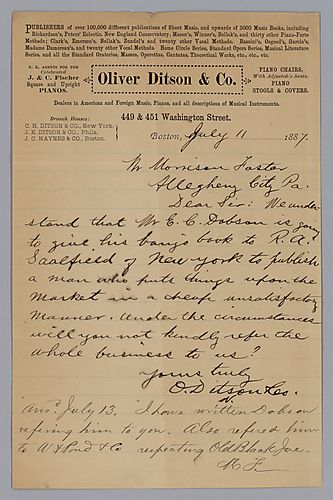 PUBLISHERS of over 100,000 different publications of Sheet Music, and upwards of 3000 Music Books, including
Richardson's, Peters' Eclectic, New England Conservatory, Mason's, Winner's, Bellak's, and thirty other Piano-Forte
Methods; Clark's, Emerson's, Bellak's, Zundel's and twenty other Vocal Methods. Bassini's, Operti's, Garcia's
Madame Dumoreau's, and twenty other Vocal Methods. Home Circle Series, Standard Opera Series, Musical Literature
Series, and all the Standard Oratorios, Masses, Operettas, Cantatas, Theoretical Works, etc., etc., etc.
N. E. AGENTS FOR THE
Celebrated
J. & C. Fischer
Square and Upright
PIANOS.
Oliver Ditson & Co.
PIANO CHAIRS,
With Adjustable Seats.
PIANO
STOOLS & COVERS.
Dealers in American and Foreign Music, Pianos, and all descriptions of Musical Instruments.
Branch Houses:
C. H. DITSON & CO., New York.
J. E. DITSON & CO., Phila.
J. C. HAYNES & CO., Boston.
449 & 451 Washington Street.
Boston, July 11 1887.
Mr Morrison Foster
Allegheny City Pa.
Dear Sir: We under
stand that Mr E. C. Dobson is going
to give his banjo book to R. A.
Saalfield of New York to publish
a man who puts things upon the
market in a cheap unsatisfactory
manner. Under the circumstances
will you not kindly refer the
whole business to us?
Yours truly
O. Ditson & Co.
Ans. July 13. I have written Dobson
refering him to you. Also refered him
to Wm A Pond & Co respecting Old Black Joe.
M F